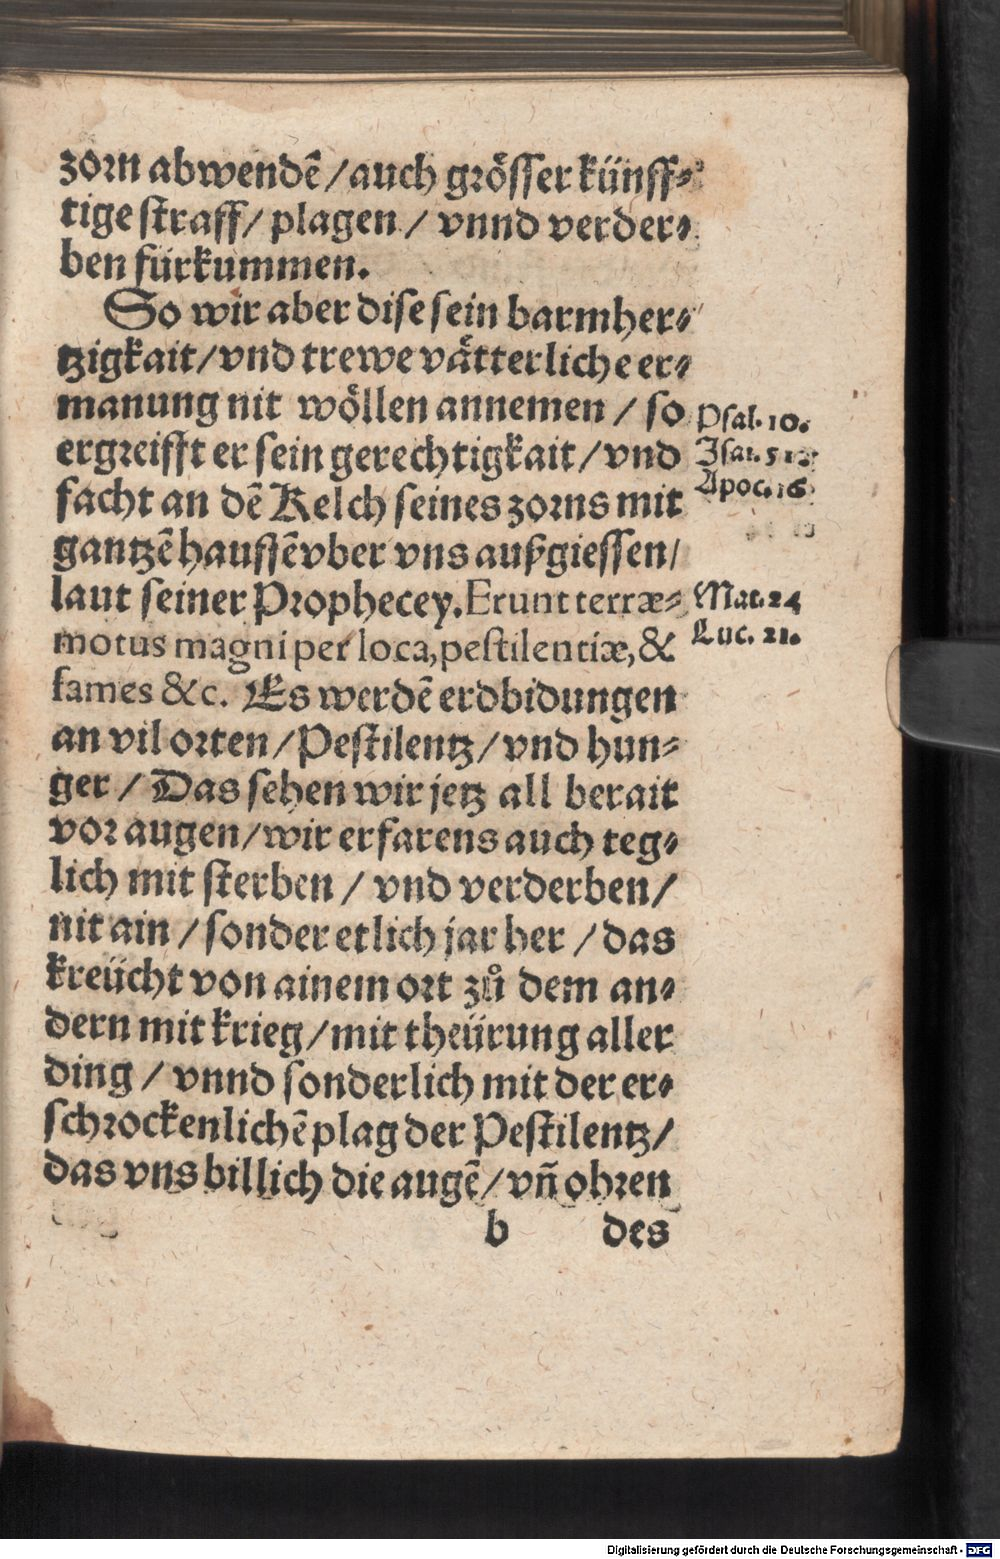 zorn abwendẽ/auch grösser künff⸗
tige straff/ plagen / vnnd verder⸗
ben fürkummen.
So wir aber dise sein barmher⸗
tzigkait/vnd trewe vätterliche er⸗
manung nit wöllen annemen / so
ergreifft er sein gerechtigkait/vnd
facht an dẽ Kelch seines zorns mit
gantzẽ hauffẽ vber vns außgiessen/
laut seiner Prophecey. Erunt terræ⸗
motus magni per loca, pestilentiæ, &
fames &c. Es werdẽ erdbidungen
an vil orten/Pestilentz/vnd hun⸗
ger / Das sehen wir jetz all berait
vor augen/wir erfarens auch teg⸗
lich mit sterben / vnd verderben/
nit ain /sonder etlich jar her /das
kreücht von ainem ort zů dem an⸗
dern mit krieg/mit theürung aller
ding / vnnd sonderlich mit der er⸗
schrockenlichẽ plag der Pestilentz/
das vns billich die augẽ/vñ ohren
b des
Psal. 10.
Isai. 51.
Apoc. 16
Mat. 24
Luc. 21.
Digitalisierung gefördert durch die Deutsche Forschungsgemeinschaft - DFG